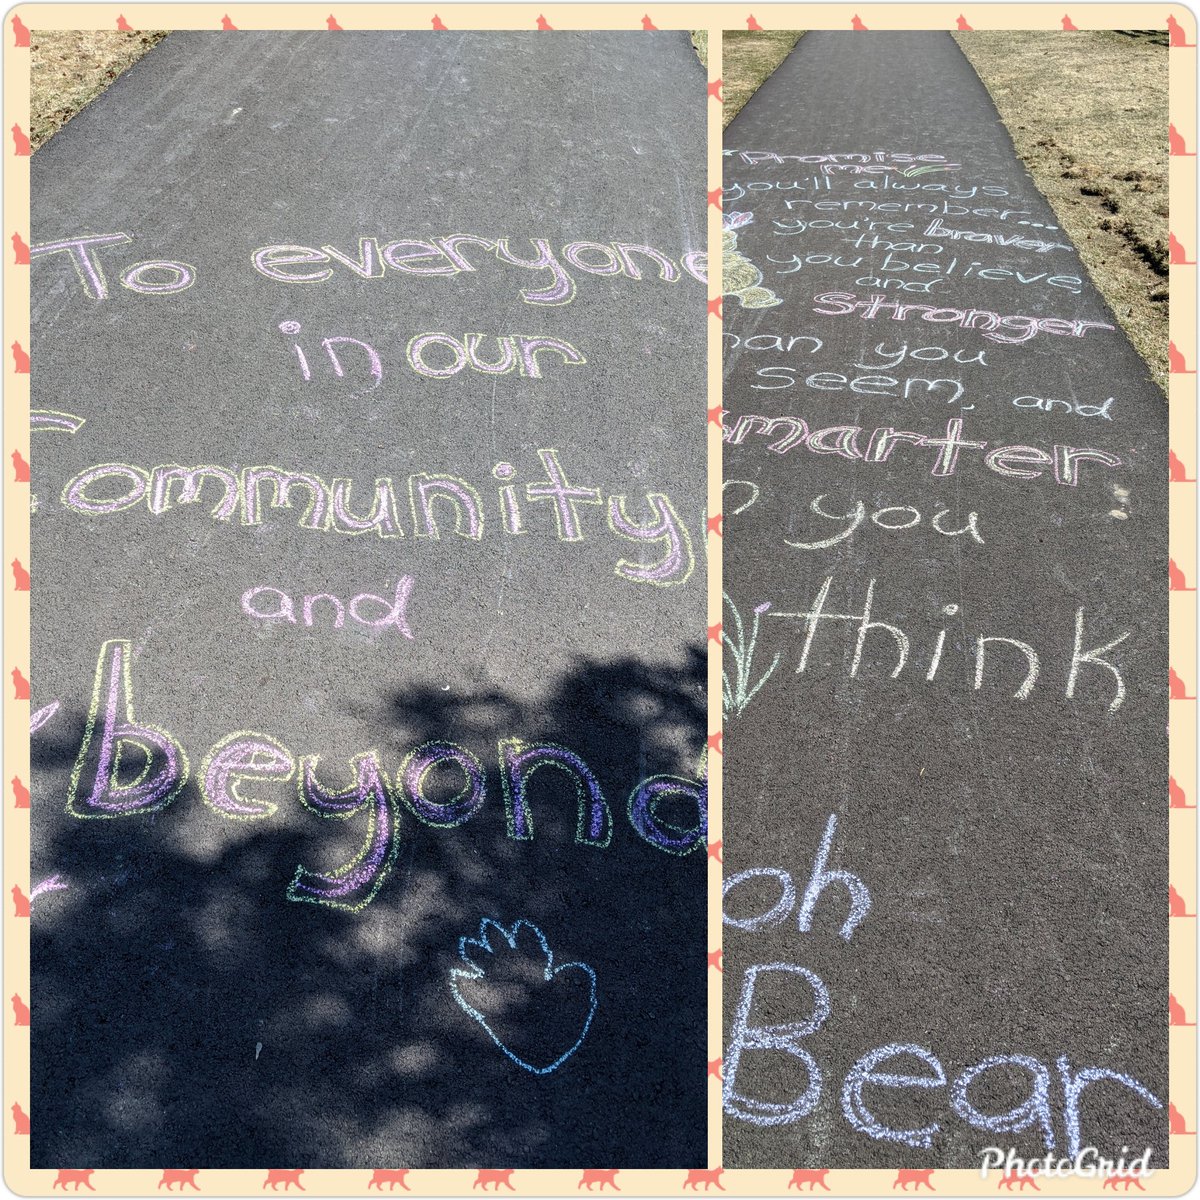 To everyone
in our
Community
and
beyond
Promise
me
you'll always
remember...
you're braver
than
you believe,
and
Stronger
han you
seem, and
smarter
you
think
oh
Bear
PhotoGrid